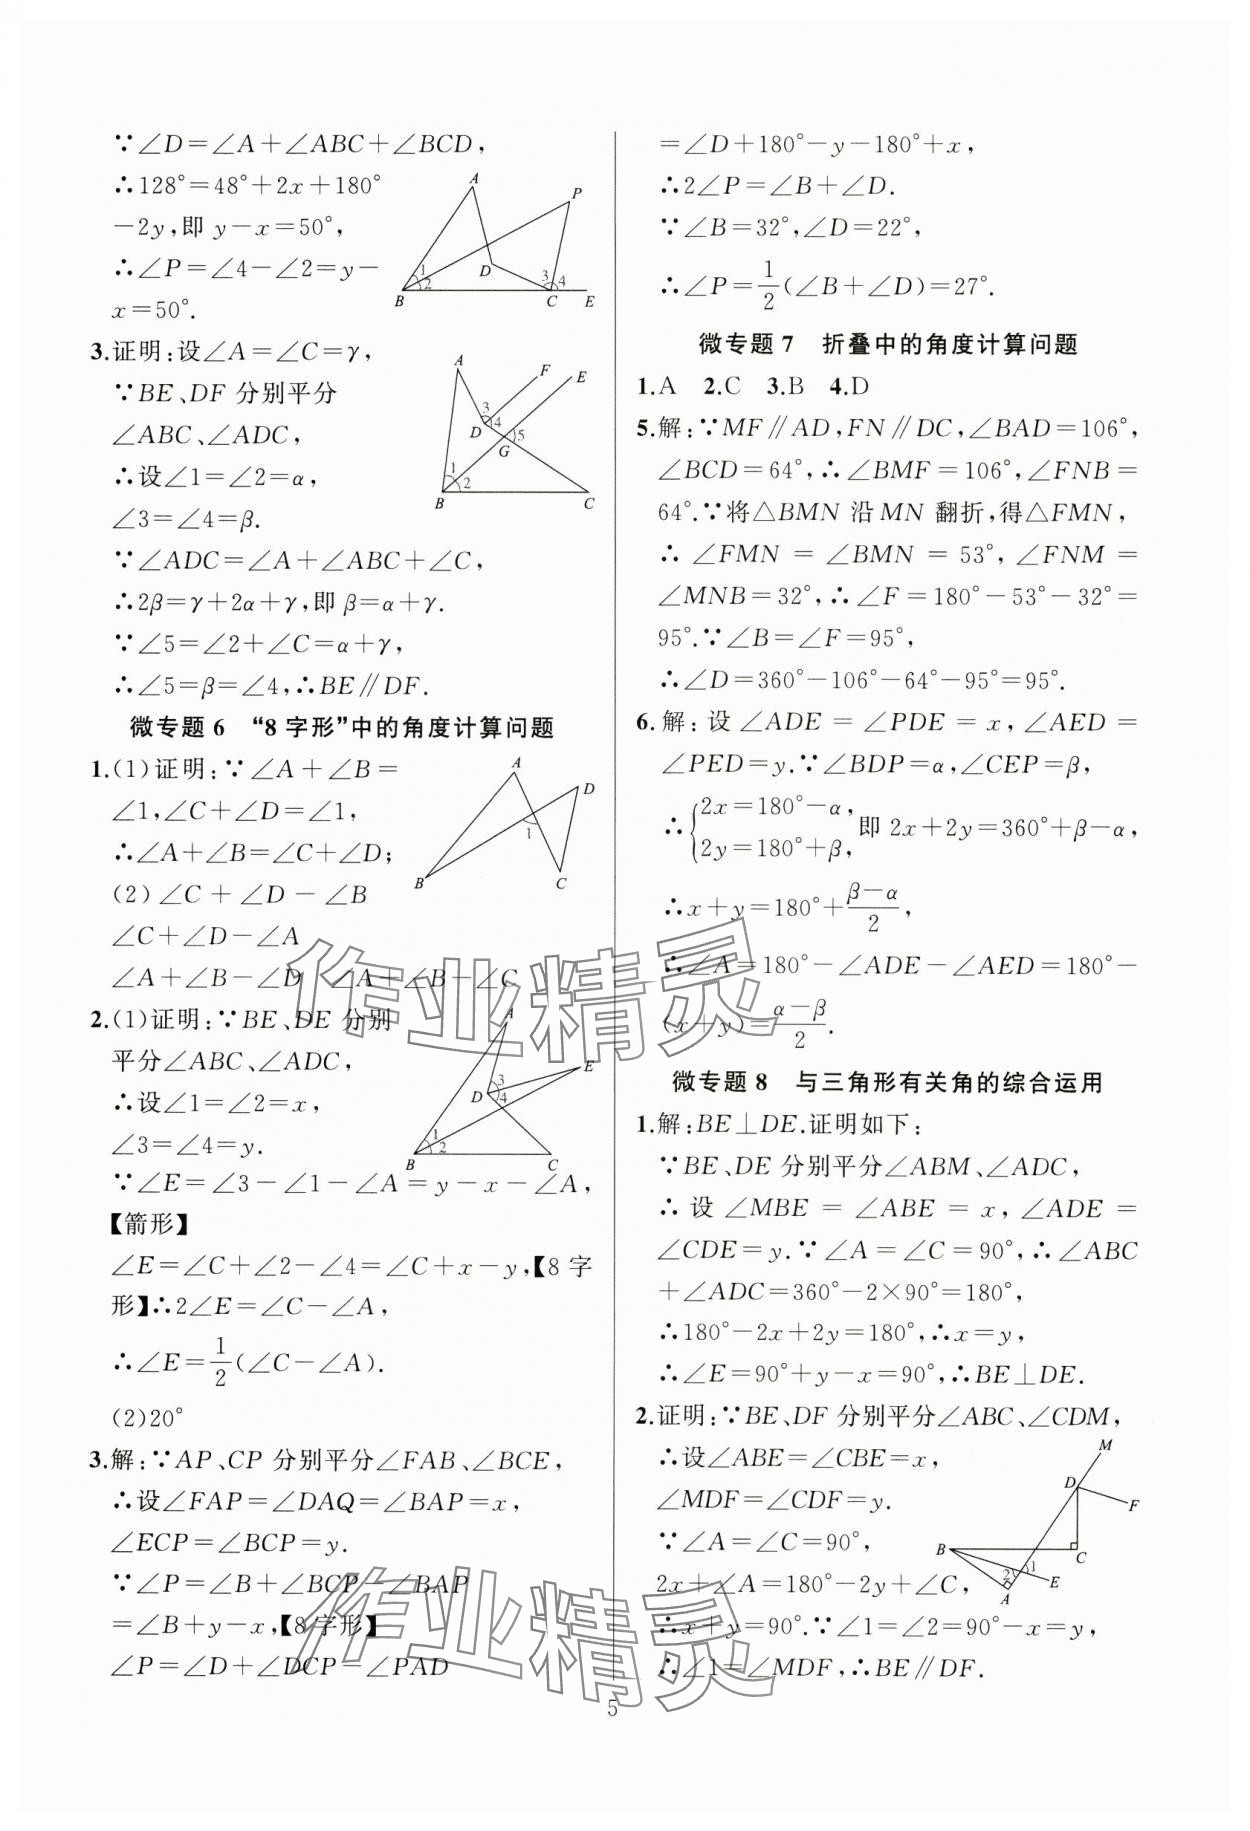 ∵∠D=∠A+∠ABC+∠BCD,
∴128°=48°+2x+180°
-2y,即 y-x=50°,
∴∠P=∠4-∠2=y-
x=50°.
A
P
D
1
2
3
4
B
C
E
3.证明:设∠A=∠C=γ,
∵BE、DF 分别平分
∠ABC、∠ADC,
∴设∠1=∠2=α,
∠3=∠4=β.
A
F
E
3
4
D
5
G
1
2
B
C
∵∠ADC=∠A+∠ABC+∠C,
∴2β=γ+2α+γ,即 β=α+γ.
∵∠5=∠2+∠C=α+γ,
∴∠5=β=∠4,∴BE∥DF.
微专题 6 “8 字形”中的角度计算问题
1.(1)证明:∵∠A+∠B=
∠1,∠C+∠D=∠1,
∴∠A+∠B=∠C+∠D;
(2)∠C+∠D-∠B
∠C+∠D-∠A
∠A+∠B-∠D ∠A+∠B-∠C
A
D
1
B
C
2.(1)证明:∵BE、DE 分别
平分∠ABC、∠ADC,
∴设∠1=∠2=x,
∠3=∠4=y.
A
E
3
D
4
1
2
B
C
∵∠E=∠3-∠1-∠A=y-x-∠A,
【箭形】
∠E=∠C+∠2-∠4=∠C+x-y,【8 字
形】∴2∠E=∠C-∠A,
∴∠E=1/2(∠C-∠A).
(2)20°
3.解:∵AP、CP 分别平分∠FAB、∠BCE,
∴设∠FAP=∠DAQ=∠BAP=x,
∠ECP=∠BCP=y.
∵∠P=∠B+∠BCP-∠BAP
=∠B+y-x,【8 字形】
∠P=∠D+∠DCP-∠PAD
=∠D+180°-y-180°+x,
∴2∠P=∠B+∠D.
∵∠B=32°,∠D=22°,
∴∠P=1/2(∠B+∠D)=27°.
微专题 7 折叠中的角度计算问题
1.A 2.C 3.B 4.D
5.解:∵MF∥AD,FN∥DC,∠BAD=106°,
∠BCD=64°,∴∠BMF=106°,∠FNB=
64°.∵将△BMN 沿 MN 翻折,得△FMN,
∴∠FMN=∠BMN=53°,∠FNM=
∠MNB=32°,∴∠F=180°-53°-32°=
95°.∵∠B=∠F=95°,
∴∠D=360°-106°-64°-95°=95°.
6.解:设∠ADE=∠PDE=x,∠AED=
∠PED=y.∵∠BDP=α,∠CEP=β,
∴{2x=180°-α, 2y=180°+β, 即 2x+2y=360°+β-α,
∴x+y=180°+(β-α)/2,
∴∠A=180°-∠ADE-∠AED=180°-
(x+y)=(α-β)/2.
微专题 8 与三角形有关角的综合运用
1.解:BE⊥DE.证明如下:
∵BE、DE 分别平分∠ABM、∠ADC,
∴设∠MBE=∠ABE=x,∠ADE=
∠CDE=y.∵∠A=∠C=90°,∴∠ABC
+∠ADC=360°-2×90°=180°,
∴180°-2x+2y=180°,∴x=y,
∴∠E=90°+y-x=90°,∴BE⊥DE.
2.证明:∵BE、DF 分别平分∠ABC、∠CDM,
∴设∠ABE=∠CBE=x,
∠MDF=∠CDF=y.
∵∠A=∠C=90°,
2x+∠A=180°-2y+∠C,
∴x+y=90°.∵∠1=∠2=90°-x=y,
∴∠1=∠MDF,∴BE∥DF.
M
D
F
B
C
2
1
E
A
作业精灵
作业精灵
5